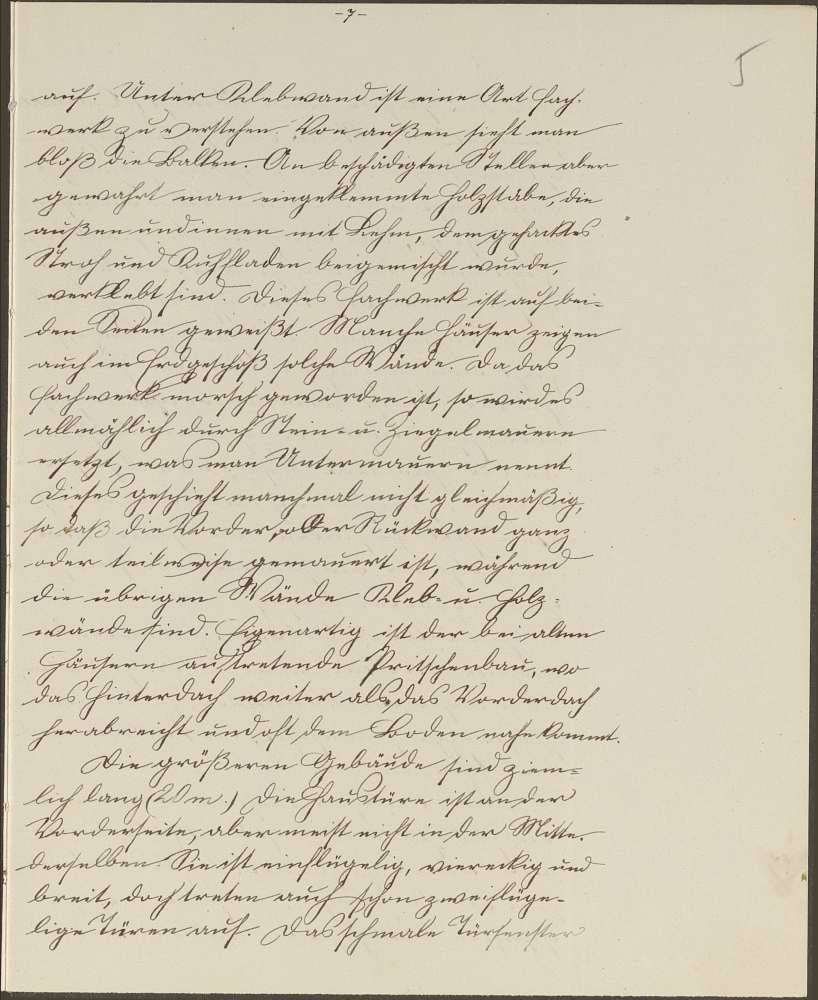 -7-
5
auf. Unter Klebwand ist eine Art Fach-
werk zu verstehen. Von außen sieht man
bloß die Balken. An beschädigten Stellen aber
gewahrt man eingeklemmte Holzstäbe, die
außen und innen mit Lehm, dem gehacktes
Stroh und Kuhfladen beigemischt wurde,
verklebt sind. Dieses Fachwerk ist auf bei-
den Seiten geweißt. Manche Häuser zeigen
auch im Erdgeschoß solche Wände. Da das
Fachwerk morsch geworden ist, so wird es
allmählich durch Stein- u. Ziegelmauern
ersetzt, was man Untermauern nennt.
Dieses geschieht manchmal nicht gleichmäßig,
so daß die Vorder- oder Rückwand ganz
oder teilweise gemauert ist, während
die übrigen Wände Kleb- u. Holz-
wände sind. Eigenartig ist der bei alten
Häusern auftretende Pritschenbau, wo
das Hinterdach weiter als das Vorderdach
herabreicht und oft dem Boden nahe kommt.
Die größeren Gebäude sind ziem-
lich lang (20 m.) Die Haustüre ist an der
Vorderseite, aber meist nicht in der Mitte
derselben. Sie ist einflügelig, viereckig und
breit, doch treten auch schon zweiflüge-
lige Türen auf. Das schmale Türfenster